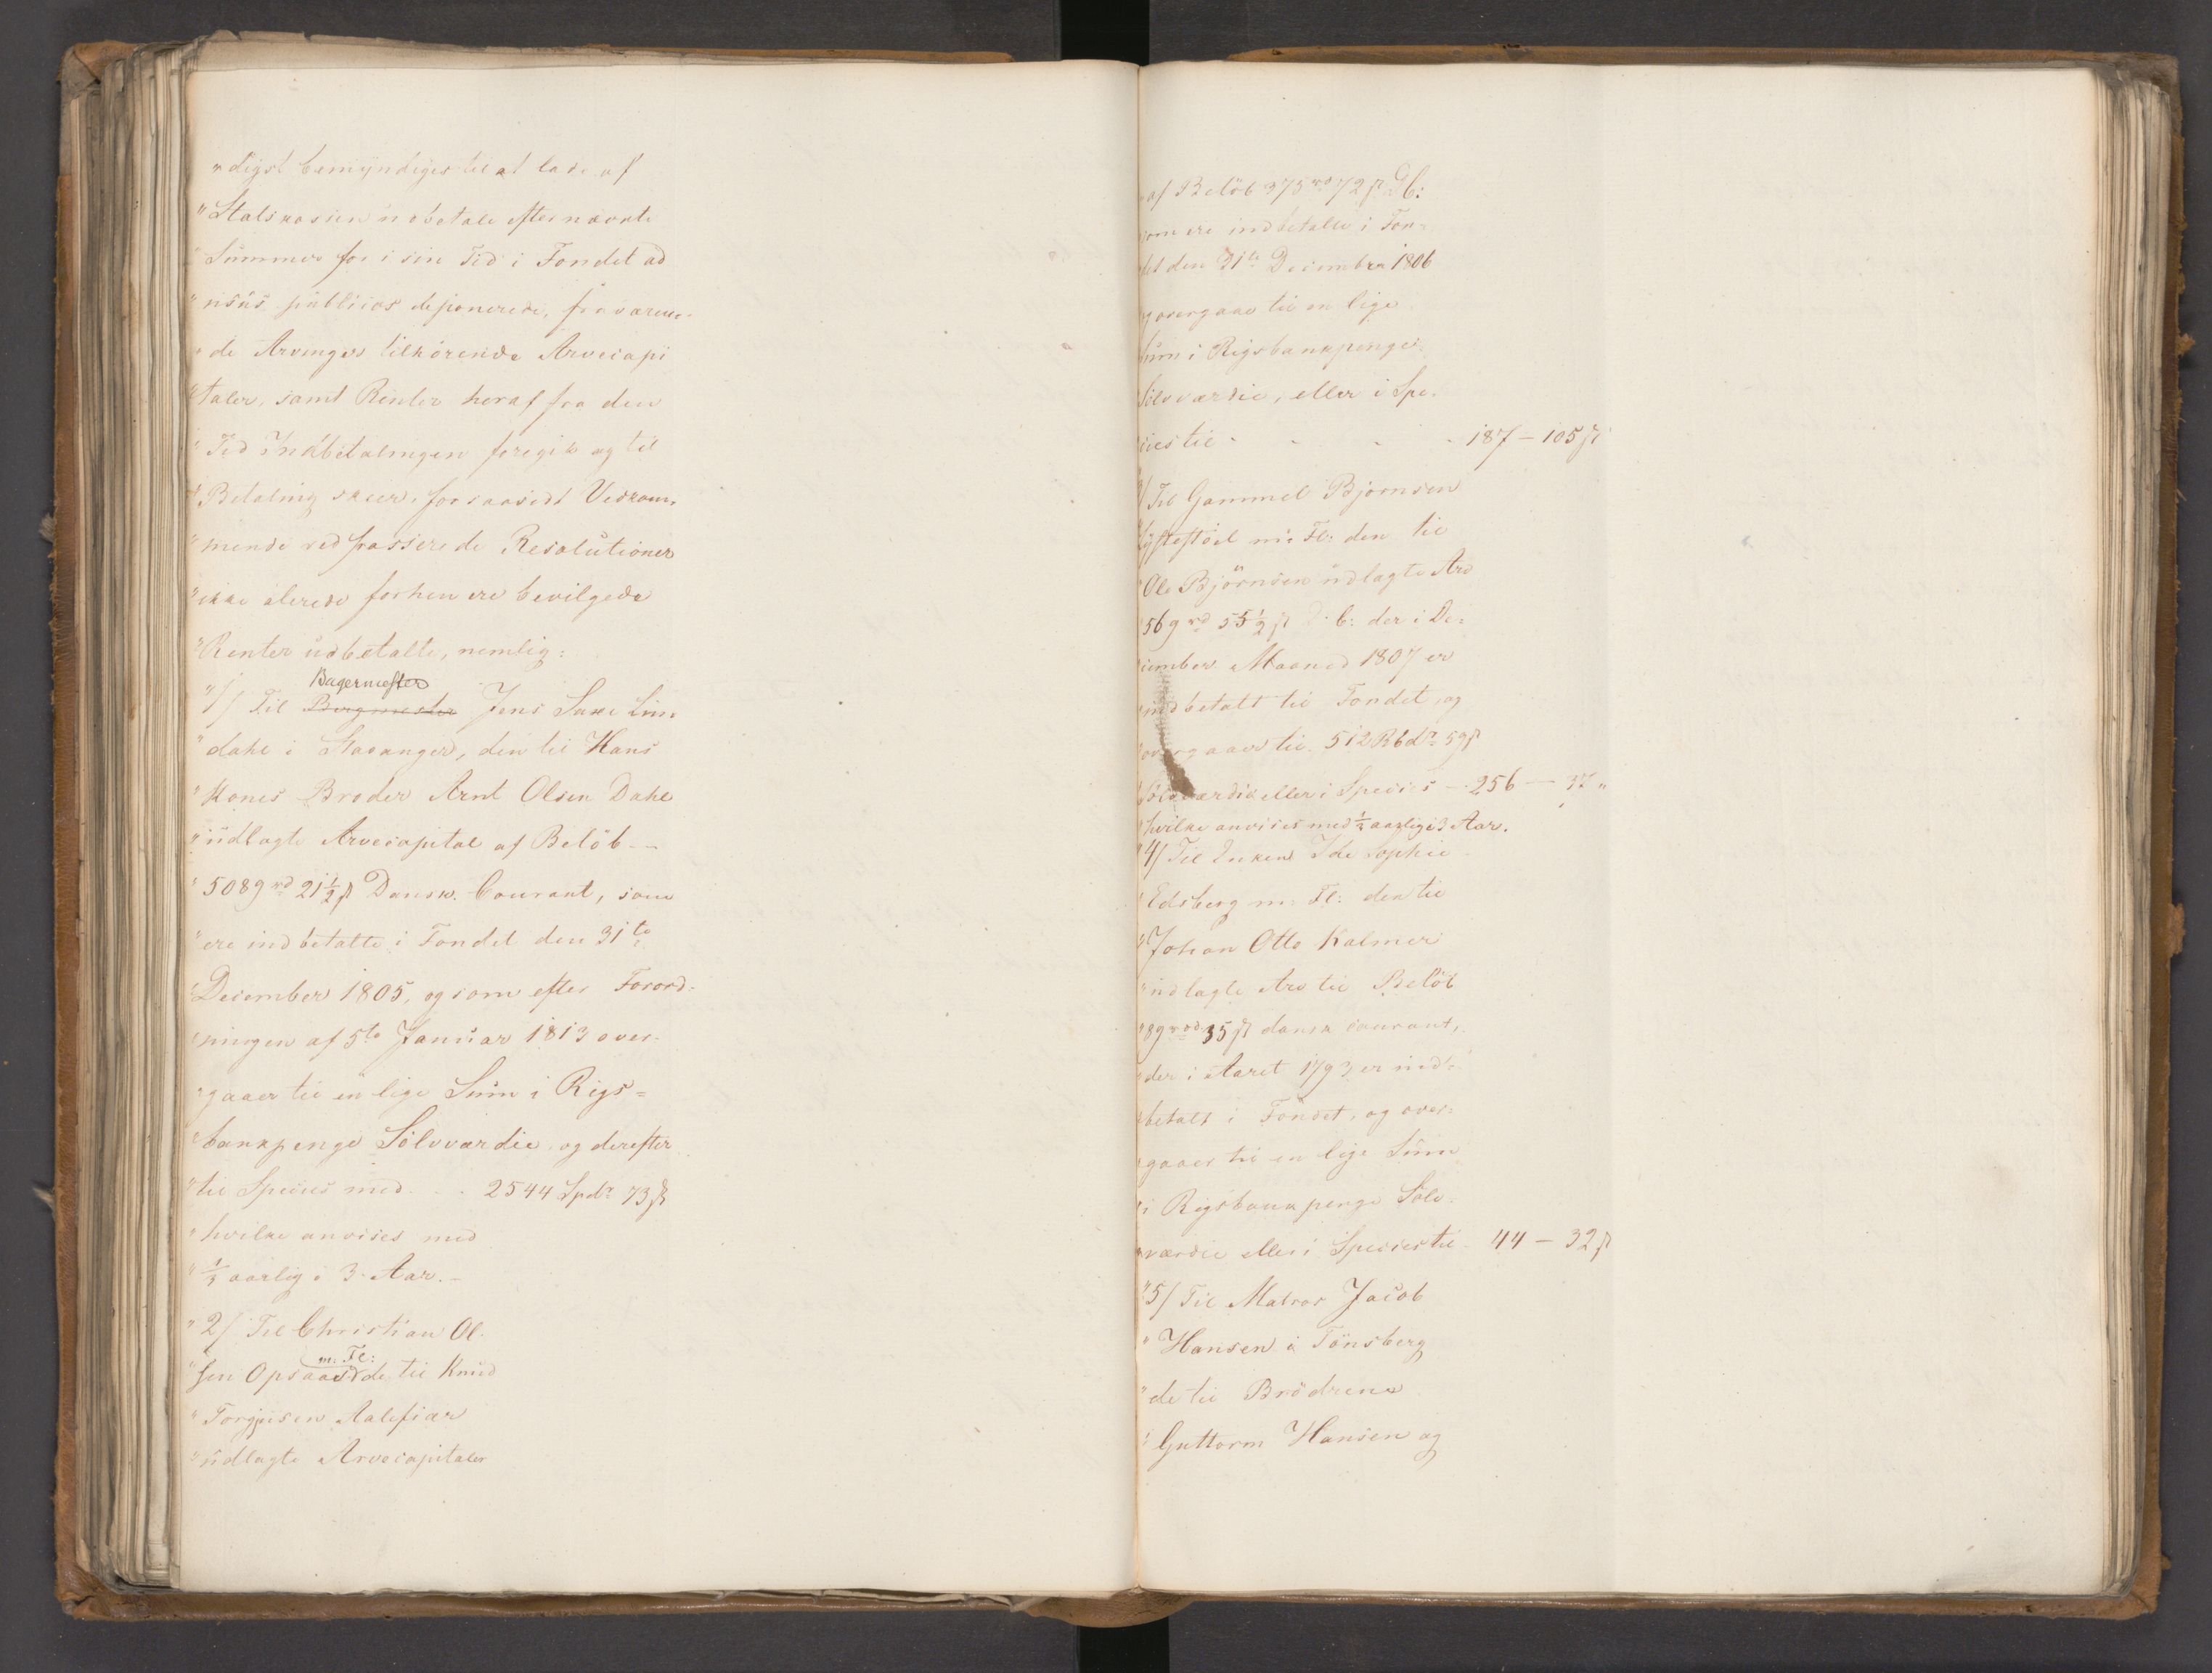 "digst bemyndiges til at lade af
"Statskassen udbetale efternævnte
"Summer for i sin Tid i Fondet ad
"usus publicos deponerede, fraværen-
"de Arvinger tilhörende Arvecapi
"taler, samt Renter heraf fra den
"Tid Indbetalingen foregik og til
"Betaling skeer, forsaavidt Vedkom-
"mende ved passerede Resolutioner
"ikke alerede forhen ere bevilgede
"Renter udbetalte, nemlig:
Bagermester
"1/ Til Bergmester Jens Saxe Lin-
"dahl i Stavanger, den til Hans
"Kones Broder Arnt Olsen Dahl
"udlagte Arvecapital af Belöb --
"5089 rd 21½ ß Dansk. Courant, som
"ere indbetalte i Fondet den 31te
"December 1805, og som efter Forord-
"ningen af 5te Januar 1813 over-
"gaaer til en lige Sum i Rigs=
"bankpenge Sölvværdie, og derefter
"til Species med . . 2544 Spdr 73 ß
"hvilke anvises med
"⅓ aarlig i 3 Aar. -
"2/ Til Christian Ol-
m: Fl:
"sen Opsaard de til Knud
"Torgjusen Aalefiær
"udlagte Arvecapitaler
"af Belöb 375 rd 72 ß D C:
som ere indbetalte i Fon-
det den 31te December 1806
og overgaaer til en lige
Sum i Rigsbankpenge
Sölvværdie, eller i Spe-
cies til - - - - 187 - 105 ß
3/ Til Gammel Bjørnsen
m: Fl: den til
"Ole Björnsen udlagte Arv
"569 rd 55½ ß D: C: der i De-
cember Maaned 1807 er
indbetalt til Fondet, og
overgaaer til 512 Rbdr 59 ß
Sölvværdie eller i Species - 256 - 37 "
"hvilke anvises med ⅓ aarlig i 3 Aar.
"4/ Til Enken Ide Sophie
"Edsberg m: Fl: den til
"Johan Otto Kalmer
"udlagte Arv til Belöb
"89 rd 35 ß dansk courant,
"der i Aaret 1793 er ind-
"betalt i Fondet, og over-
"gaaer til en lige Sum
"i Rigsbankpenge Sölv-
"værdie eller i Species til - 44 - 32 ß
"5/ Til Matros Jacob
"Hansen i Tönsberg
"de til Brödrene
"Guttorm Hansen og